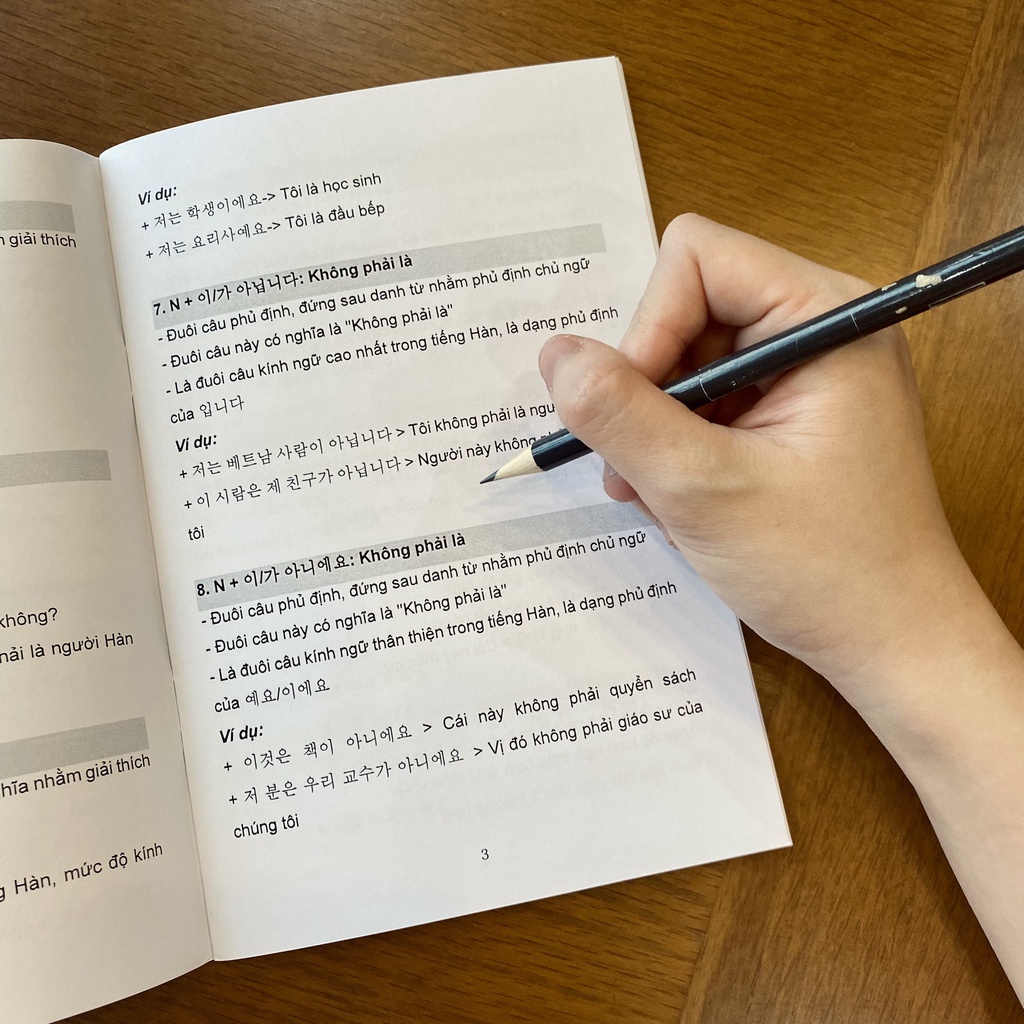 n giải thích
không?
hải là người Hàn
hĩa nhằm giải thích
g Hàn, mức độ kính
Ví dụ:
+ 저는 학생이에요-> Tôi là học sinh
+ 저는 요리사예요-> Tôi là đầu bếp
7. N + 이/가 아닙니다: Không phải là
- Đuôi câu phủ định, đứng sau danh từ nhằm phủ định chủ ngữ
- Đuôi câu này có nghĩa là "Không phải là"
- Là đuôi câu kính ngữ cao nhất trong tiếng Hàn, là dạng phủ định
của 입니다
Ví dụ:
+ 저는 베트남 사람이 아닙니다 > Tôi không phải là
+ 이 시람은 제 친구가 아닙니다 > Người này không
tôi
8. N + 이/가 아니에요: Không phải là
- Đuôi câu phủ định, đứng sau danh từ nhằm phủ định chủ ngữ
- Đuôi câu này có nghĩa là "Không phải là"
- Là đuôi câu kính ngữ thân thiện trong tiếng Hàn, là dạng phủ định
của 예요/이에요
Ví dụ:
+ 이것은 책이 아니에요 > Cái này không phải quyển sách
+ 저 분은 우리 교수가 아니에요 > Vị đó không phải giáo sư của
chúng tôi
3